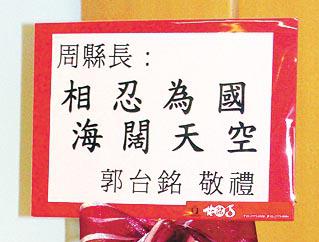 周縣長：
相忍為國
海闊天空
郭台銘 敬禮